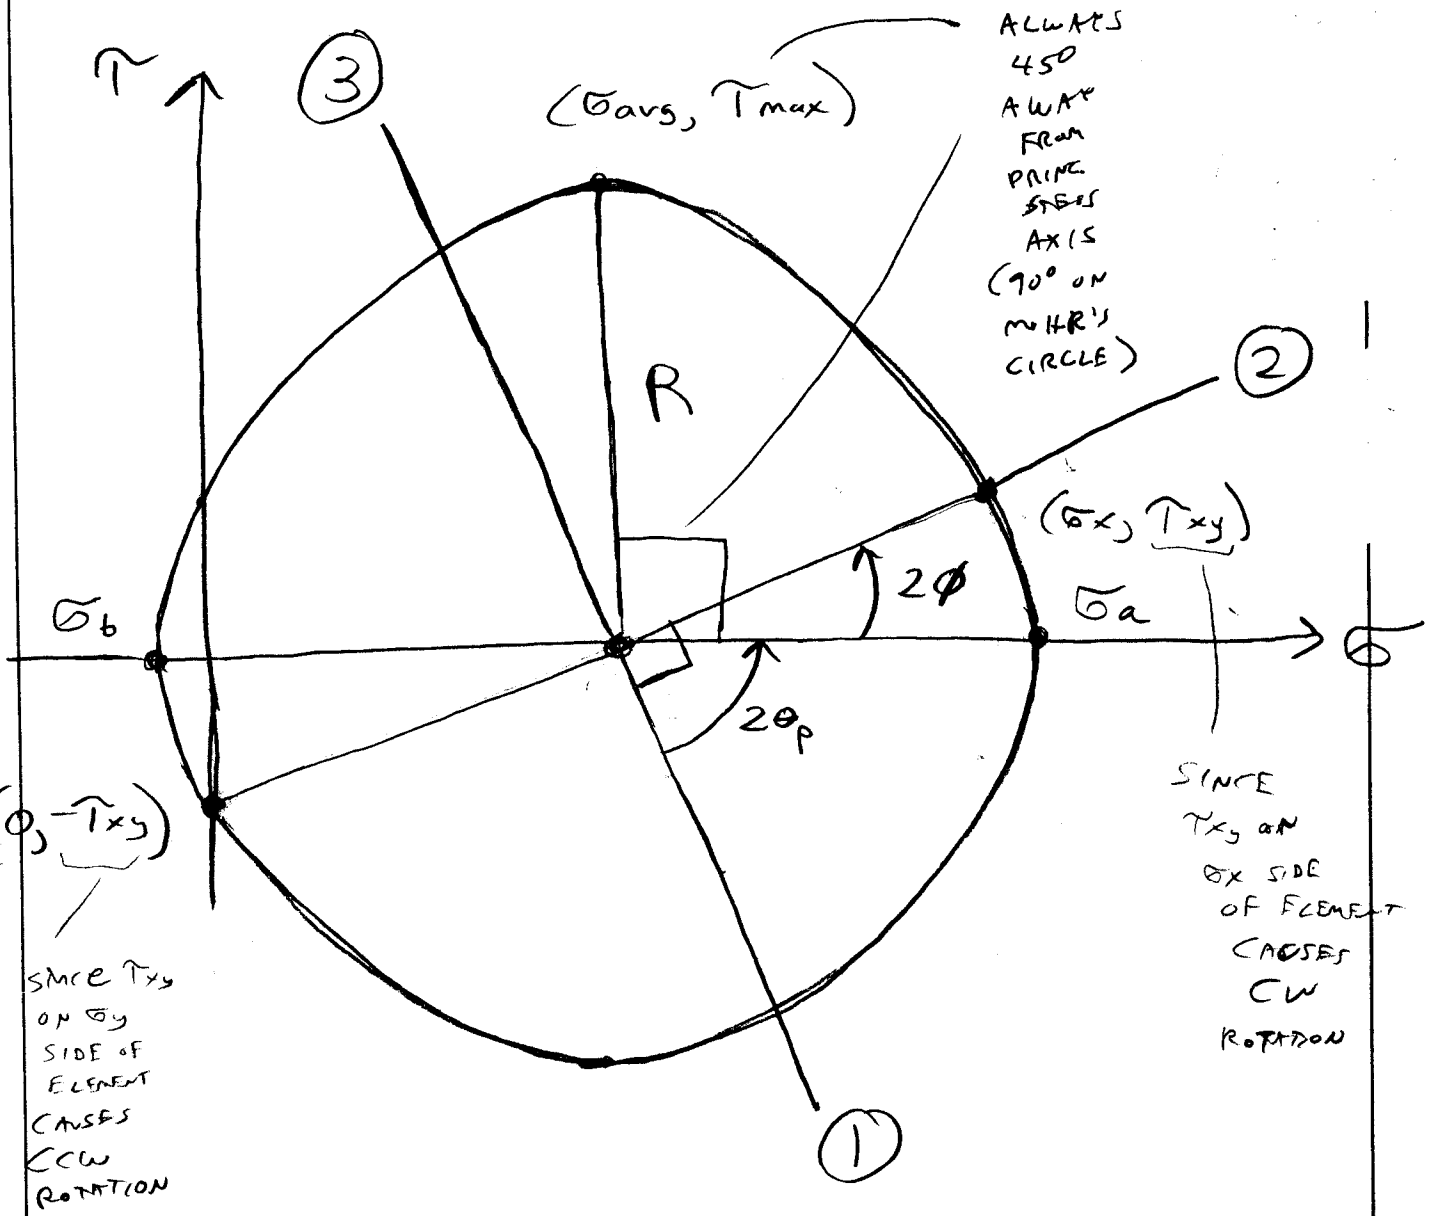 τ
③
(σavg, τmax)
ALWAYS
45°
AWAY
FROM
PRINC
STRESS
AXIS
(90° ON
MOHR'S
CIRCLE)
R
②
(σx, τxy)
2φ
σb
σa
σ
2θp
(0, -τxy)
SINCE
τxy ON
σx SIDE
OF ELEMENT
CAUSES
CW
ROTATION
SINCE τxy
ON σy
SIDE OF
ELEMENT
CAUSES
CCW
ROTATION
①